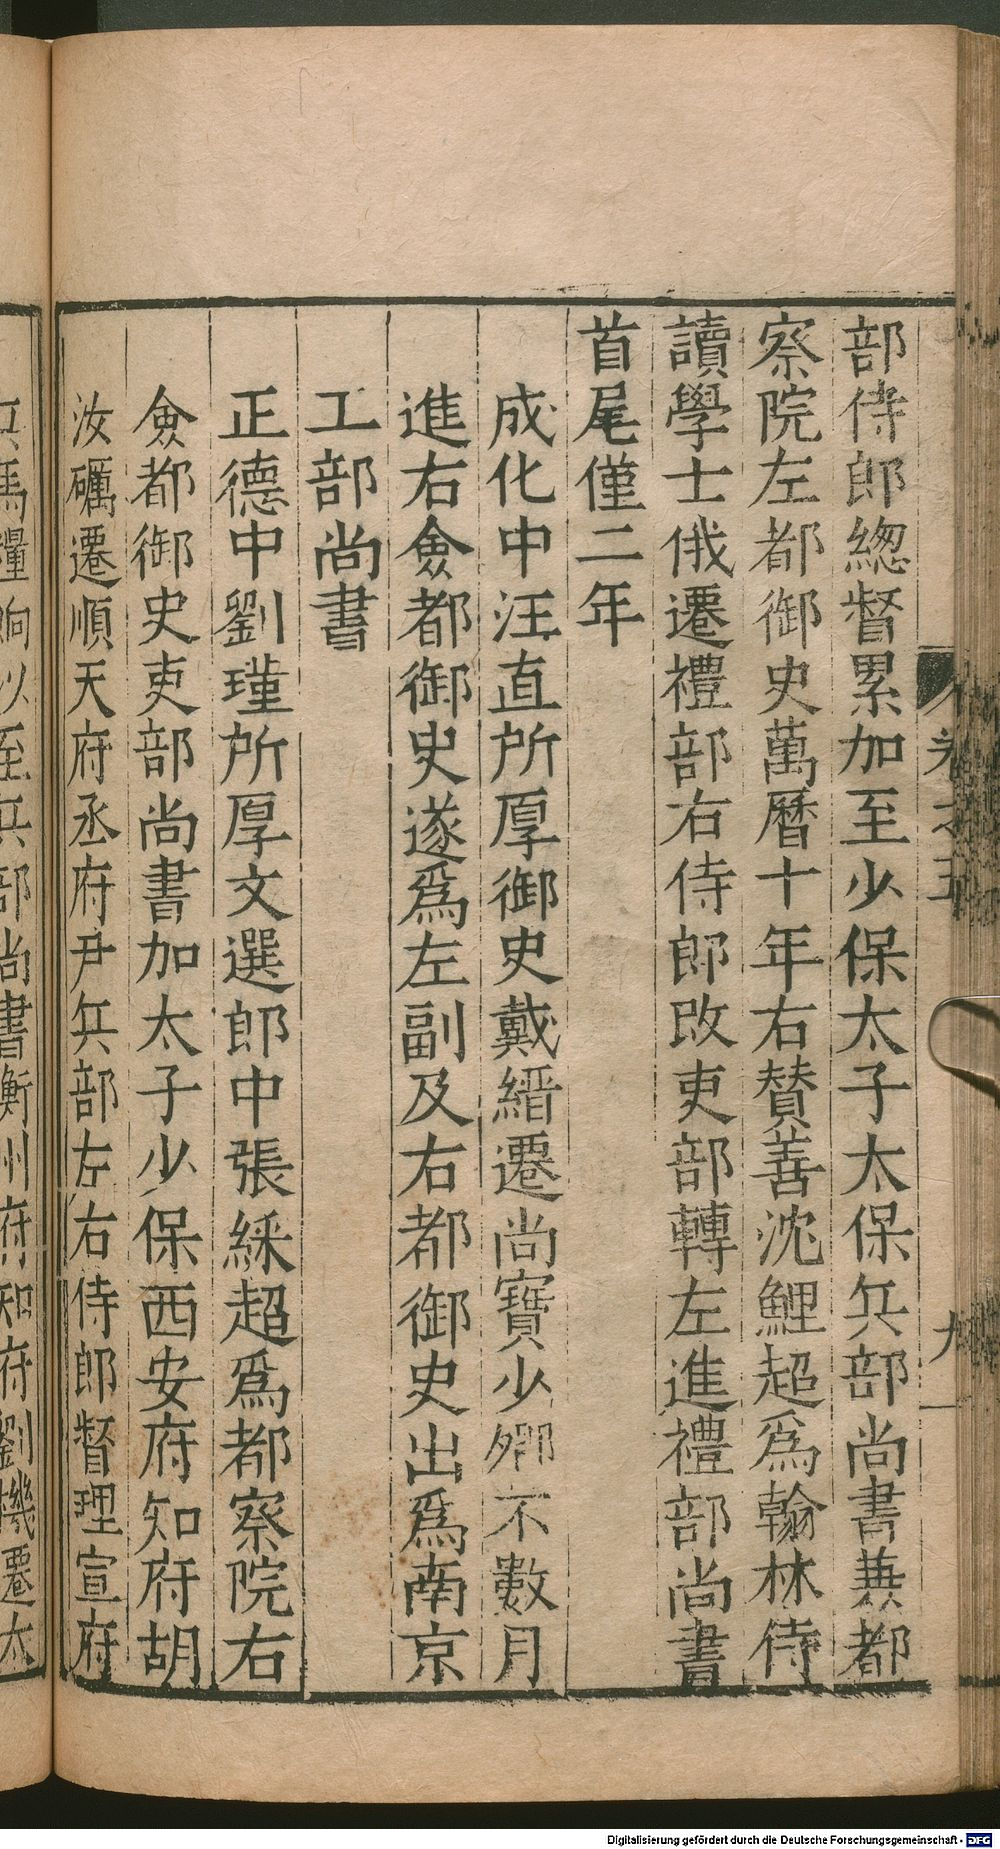 部侍郎緫督累加至少保太子太保兵部尚書蒹都
察院左都御史萬曆十年右賛善沈鯉超爲翰林侍
讀學士俄遷禮部右侍郎改吏部轉左進禮部尚書
首尾僅二年
成化中汪直所厚御史戴縉遷尚寶少卿不數月
進右僉都御史遂爲左副及右都御史出爲南京
工部尚書
正德中劉瑾所厚文選郎中張綵超爲都察院右
僉都御史吏部尚書加太子少保西安府知府胡
汝礪遷順天府丞府尹兵部左右侍郎督理宣府
兵馬糧餉以至兵部尚書衡州府知府劉機遷太
卷之五
九
Digitalisierung gefördert durch die Deutsche Forschungsgemeinschaft - DFG